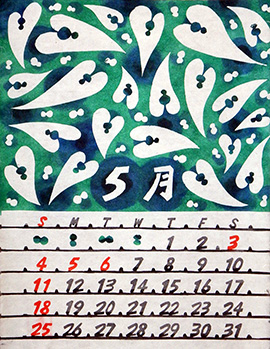 5月
S M T W T F S
1 2 3
4 5 6 7 8 9 10
11 12 13 14 15 16 17
18 19 20 21 22 23 24
25 26 27 28 29 30 31